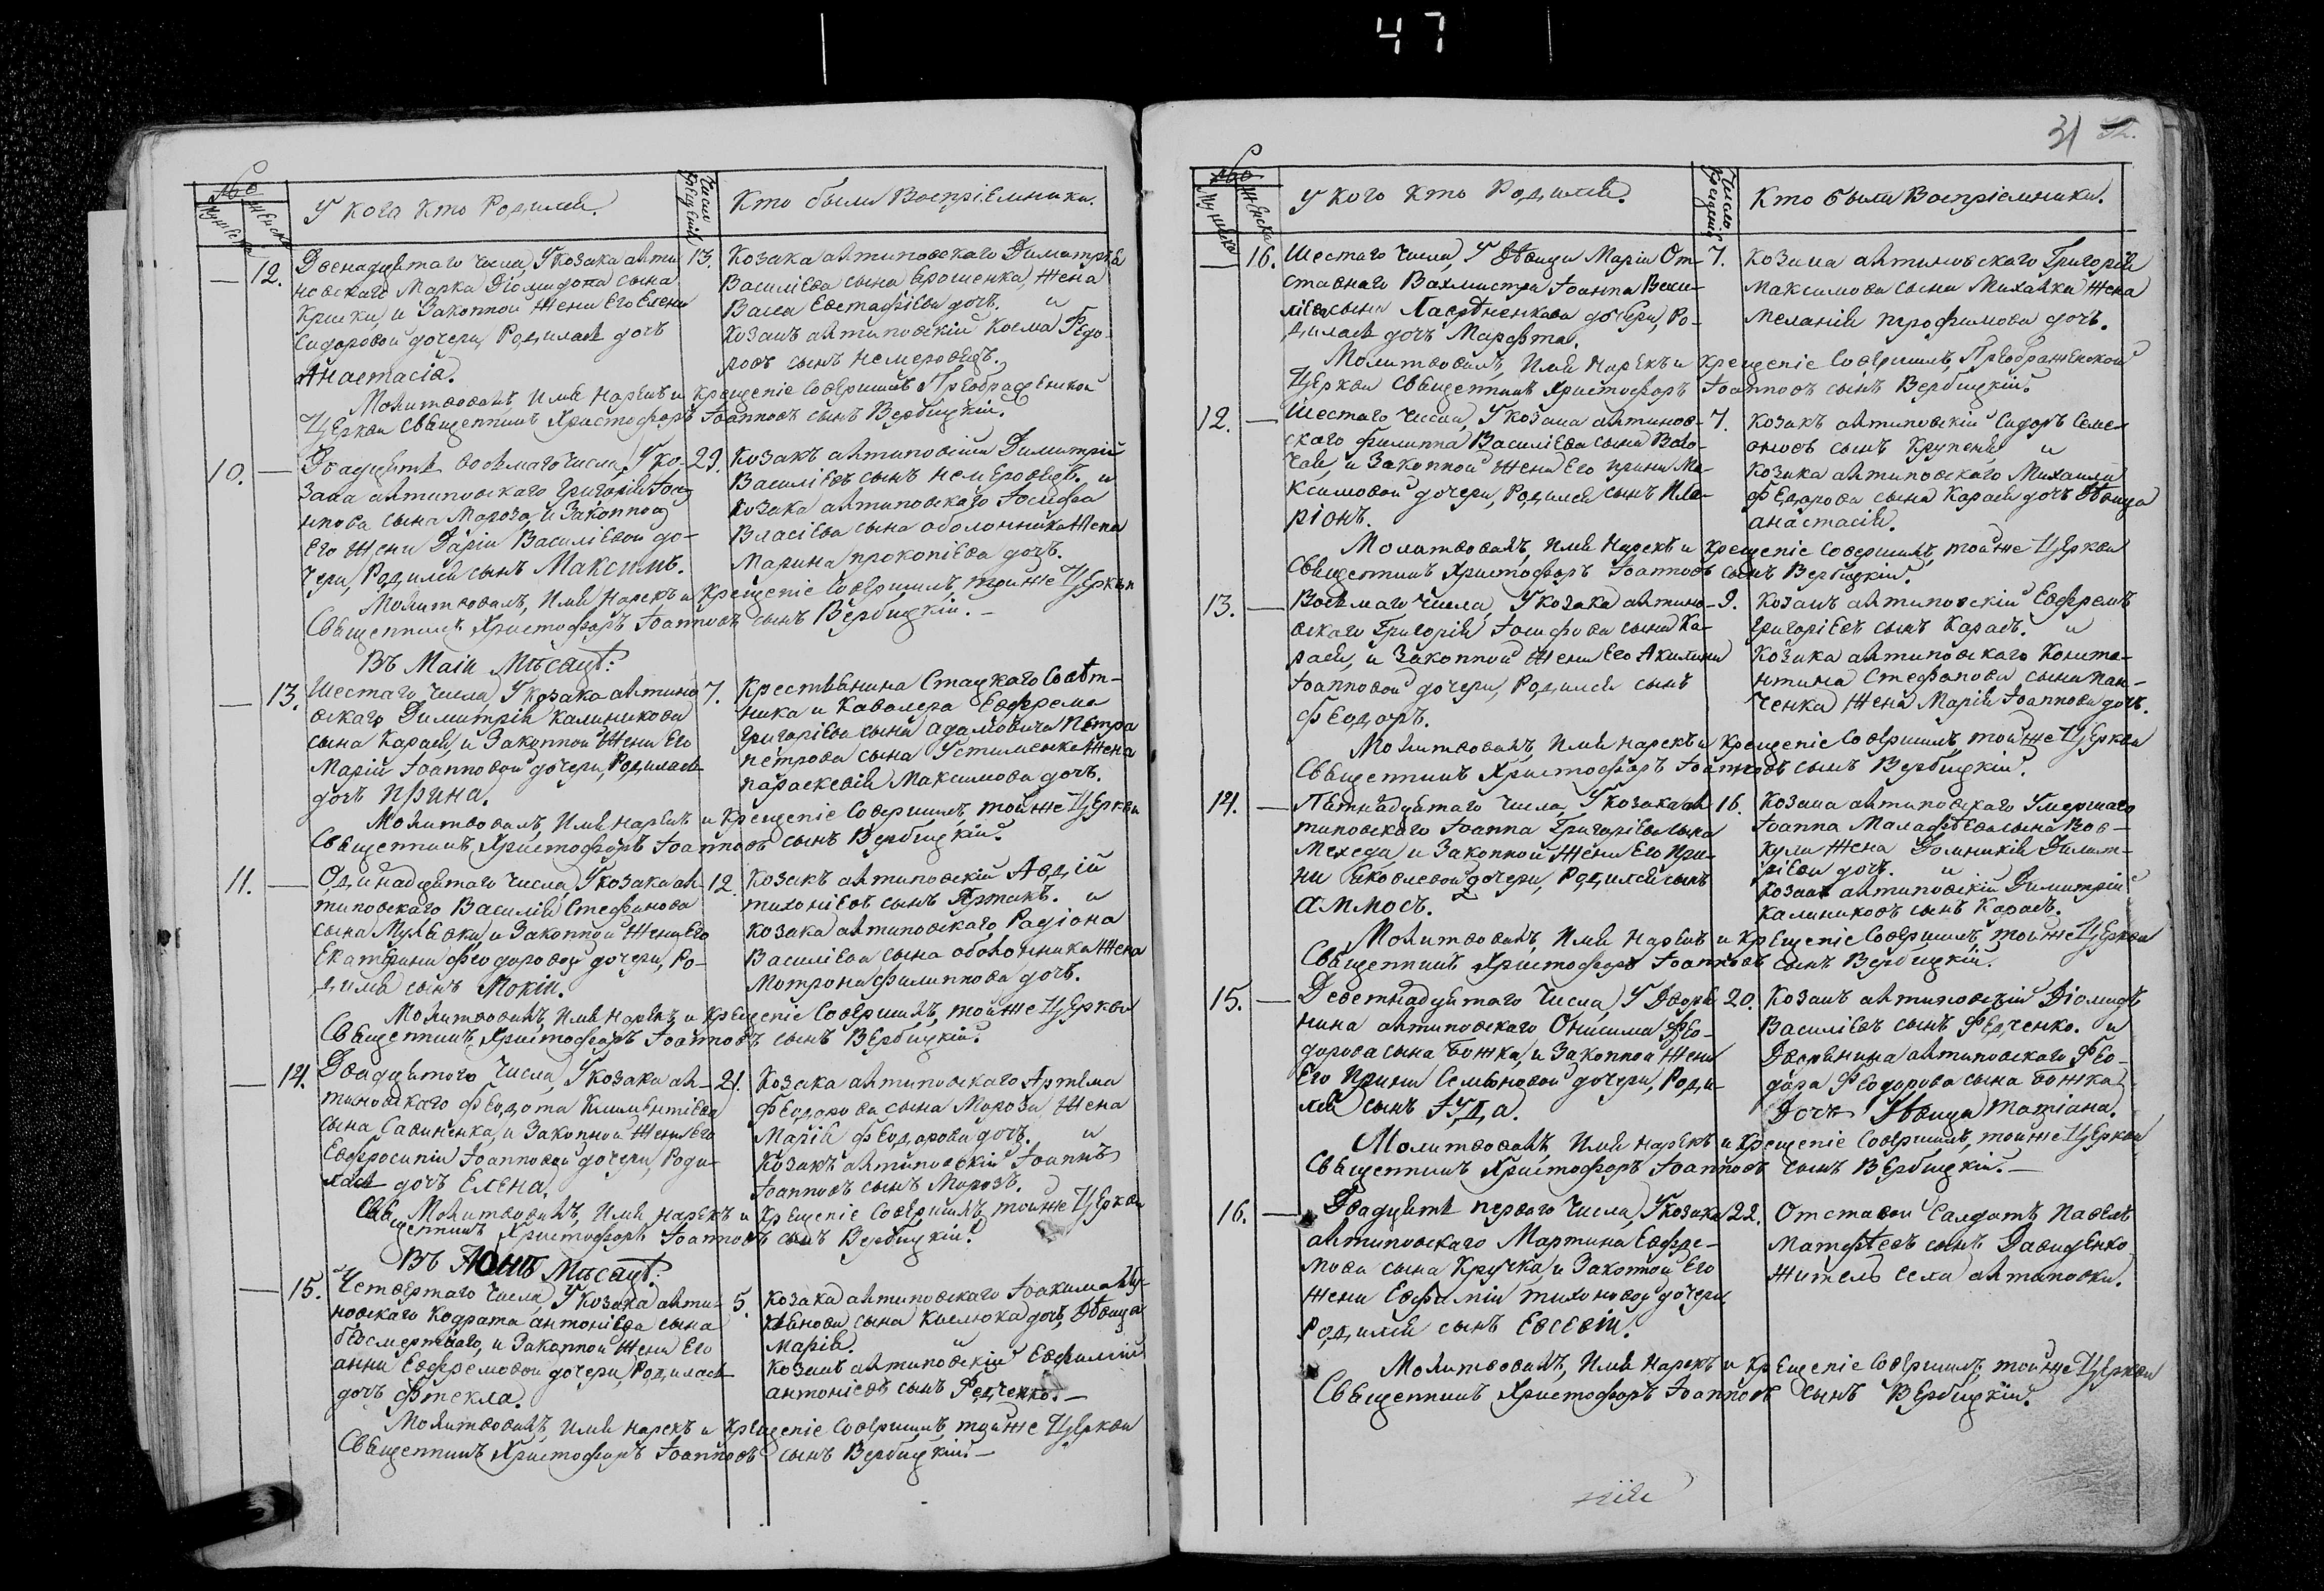 47
31
№
Мужеска
Женска
У Кого Кто Родился.
Число Крещенія
Кто были Воспріемники.
12.
Двенадцятаго Числа, У Козака анти-
повскаго Марка Діомидова сына
и Законной Жены Его Елены
Сидоровой дочери, Родилася дочь
Анастасія.
13.
Козака антиповскаго Димитрія
Василіева сына Ярошенка, Жена
Васса Евстафіева дочь, и
Козакъ антиповскій Косма Федо-
ровъ сынъ Немеровецъ.
Молитвовалъ, Имя Нарекъ и Крещеніе Совершилъ Преображенской
Церкви Священникъ Христофоръ Іоанновъ сынъ Вербицкій.
10.
Двадцять восьмаго Числа, У Ко-
зака антиповскаго Григорія Іоси-
пова сына Мороза, и Законной
Его Жены Даріи Василіевой до-
чери, Родился сынъ Максимъ.
29.
Козакъ антиповскій Димитрій
Василіевъ сынъ Немеровецъ. и
Козака антиповскаго Іосифа
Власіева сына оболонника Жена
Марина прокопіева дочь.
Молитвовалъ, Имя Нарекъ и Крещеніе Совершилъ, тойже Церкви
Священникъ Христофоръ Іоанновъ сынъ Вербицкій.
Въ Маіи Мѣсяцѣ:
13.
Шестаго Числа, У Козака антипо-
вскаго Димитрія Калиникова
сына Карася, и Законной Жены Его
Маріи Іоанновой дочери, Родилася
дочь Ирина.
7.
Крестьянина Стацкаго Совѣт-
ника и Кавалера Евфрема
Григоріева сына Адамовича Петра
петрова сына Устименка Жена
параскевія Максимова дочь.
Молитвовалъ, Имя Нарекъ и Крещеніе Совершилъ, тойже Церкви
Священникъ Христофоръ Іоанновъ сынъ Вербицкій.
11.
Одинадцятаго Числа, У Козака ан-
типовскаго Василія Стефанова
сына Мулявки, и Законной Жены Его
Екатерины Феодоровой дочери, Ро-
дился сынъ Мокій.
12.
Козакъ антиповскій Авдій
тихоніевъ сынъ Пртакъ. и
Козака антиповскаго Радіона
Василіева сына оболонника Жена
Мотрона Филиппова дочь.
Молитвовалъ, Имя Нарекъ и Крещеніе Совершилъ, тойже Церкви
Священникъ Христофоръ Іоанновъ сынъ Вербицкій.
14.
Двадцятого Числа, У Козака ан-
типовскаго Феодота Климентіева
сына Савиненка, и Законной Жены Его
Евфросиніи Іоанновой дочери, Роди-
лася дочь Елена.
21.
Козака антиповскаго Артема
Феодорова сына Мороза, Жена
Марія Феодорова дочь. и
Козакъ антиповскій Іоаннъ
Іоанновъ сынъ Морозъ.
Молитвовалъ, Имя Нарекъ и Крещеніе Совершилъ, тойже Церкви
Священникъ Христофоръ Іоанновъ сынъ Вербицкій.
Въ Іюнѣ Мѣсяцѣ:
15.
Четвертаго Числа, У Козака анти-
повскаго Кодрата антоніева сына
безсмертнаго, и Законной Жены Его
анны Евфремовой дочери, Родилася
дочь Фтекла.
5.
Козака антиповскаго Іоакима
сына Киелюка дочь, Дѣвица
Марія. и
Козакъ антиповскій Евфимій
антоніевъ сынъ Федченко.
Молитвовалъ, Имя Нарекъ и Крещеніе Совершилъ, тойже Церкви
Священникъ Христофоръ Іоанновъ сынъ Вербицкій.
№
Мужеска
Женска
У Кого Кто Родился.
Число Крещенія
Кто были Воспріемники.
16.
Шестаго Числа, У Дѣвицы Маріи От-
ставнаго Вахмистра Іоанна Васи-
ліева сына дочери, Ро-
дилася дочь Марфта.
7.
Козака антиповскаго Григорія
Максимова сына Михалка Жена
Меланія трофимова дочь.
Молитвовалъ, Имя Нарекъ и Крещеніе Совершилъ, Преображенской
Церкви Священникъ Христофоръ Іоанновъ сынъ Вербицкій.
12.
Шестаго Числа, У Козака антипов-
скаго Филиппа Василіева сына
и Законной Жены Его Ирины Ма-
ксимовой дочери, Родился сынъ Ила-
ріонъ.
7.
Козакъ антиповскій Сидоръ Семе-
оновъ сынъ Крупеня и
Козака антиповскаго Михаила
Федорова сына Карася дочь Дѣвица
анастасія.
Молитвовалъ, Имя Нарекъ и Крещеніе Совершилъ, тойже Церкви
Священникъ Христофоръ Іоанновъ сынъ Вербицкій.
13.
Восьмаго Числа, У Козака антипо-
вскаго Григорія Іосифова сына Ка-
рася, и Законной Жены Его Акилины
Іоанновой дочери, Родился сынъ
Феодоръ.
9.
Козакъ антиповскій Евфремъ
Григоріевъ сынъ Карась. и
Козака антиповскаго Конста-
нтина Стефанова сына пан-
ченка Жена Марія Іоаннова дочь.
Молитвовалъ, Имя Нарекъ и Крещеніе Совершилъ, тойже Церкви
Священникъ Христофоръ Іоанновъ сынъ Вербицкій.
14.
Пятнадцятаго Числа, У Козака ан-
типовскаго Іоанна Григоріева сына
Мехеда, и Законной Жены Его Ири-
ны Яковлевой дочери, Родился сынъ
Аммосъ.
16.
Козака антиповскаго Умершаго
Іоанна Малафѣева сына Вов-
кули Жена Домникія Димит-
ріева дочь. и
Козакъ антиповскій Димитрій
Калиниковъ сынъ Карась.
Молитвовалъ, Имя Нарекъ и Крещеніе Совершилъ, тойже Церкви
Священникъ Христофоръ Іоанновъ сынъ Вербицкій.
15.
Деветнадцятаго Числа, У Дворя-
нина антиповскаго Онисима Фео-
дорова сына Божка, и Законной Жены
Его Ирины Семьоновой дочери, Роди-
лся сынъ Іуда.
20.
Козакъ антиповскій Діомидъ
Василіевъ сынъ Федченко. и
Дворянина антиповскаго Фео-
дора Феодорова сына Божка
Дочь Дѣвица Татіана.
Молитвовалъ, Имя Нарекъ и Крещеніе Совершилъ, тойже Церкви
Священникъ Христофоръ Іоанновъ сынъ Вербицкій.
16.
Двадцять перваго Числа, У Козака
антиповскаго Мартина Евфре-
мова сына Кручка, и Законной Его
Жены Евфиміи тихоновой дочери
Родился сынъ Евсевій.
22.
Отставой Салдатъ Павелъ
Матфѣевъ сынъ Давиденко
Житель села антиповки.
Молитвовалъ, Имя Нарекъ и Крещеніе Совершилъ, тойже Церкви
Священникъ Христофоръ Іоанновъ сынъ Вербицкій.